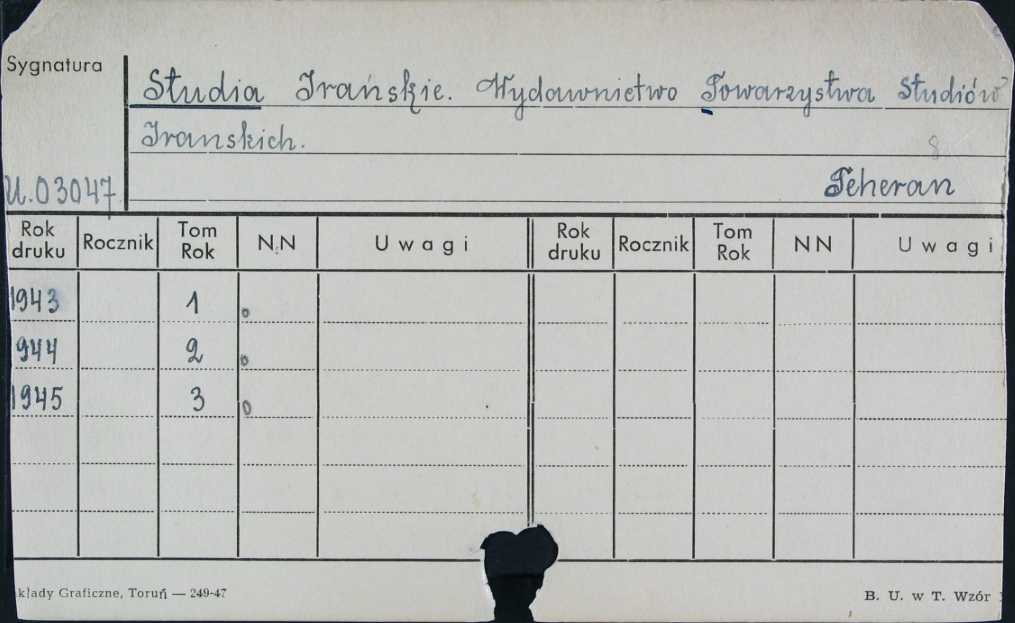 Sygnatura
Studia Irańskie. Wydawnictwo Towarzystwa Studiów
Iranskich.
8
U.03047 Teheran
Rok druku Rocznik Tom Rok NN Uwagi Rok druku Rocznik Tom Rok NN Uwagi
1943 1 o
944 2 o
1945 3 o
kłady Graficzne, Toruń — 249-47 B. U. w T. Wzór